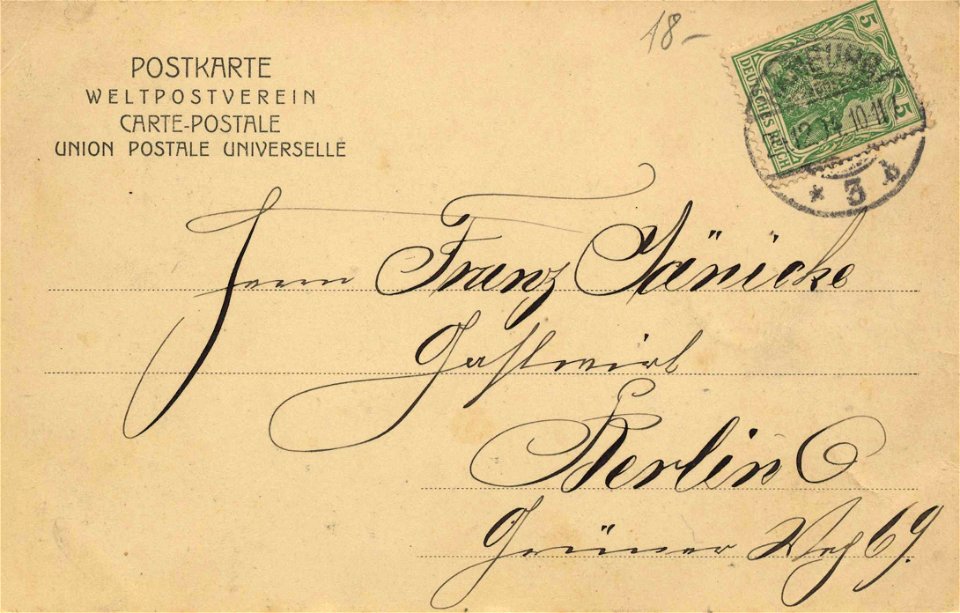 18-
POSTKARTE
WELTPOSTVEREIN
CARTE-POSTALE
UNION POSTALE UNIVERSELLE
5
DEUTSCHES REICH
5
12.14.10-11
* 3 b
Herrn Franz Jänicke
Gastwirt
Berlin O
Grüner Weg 69.